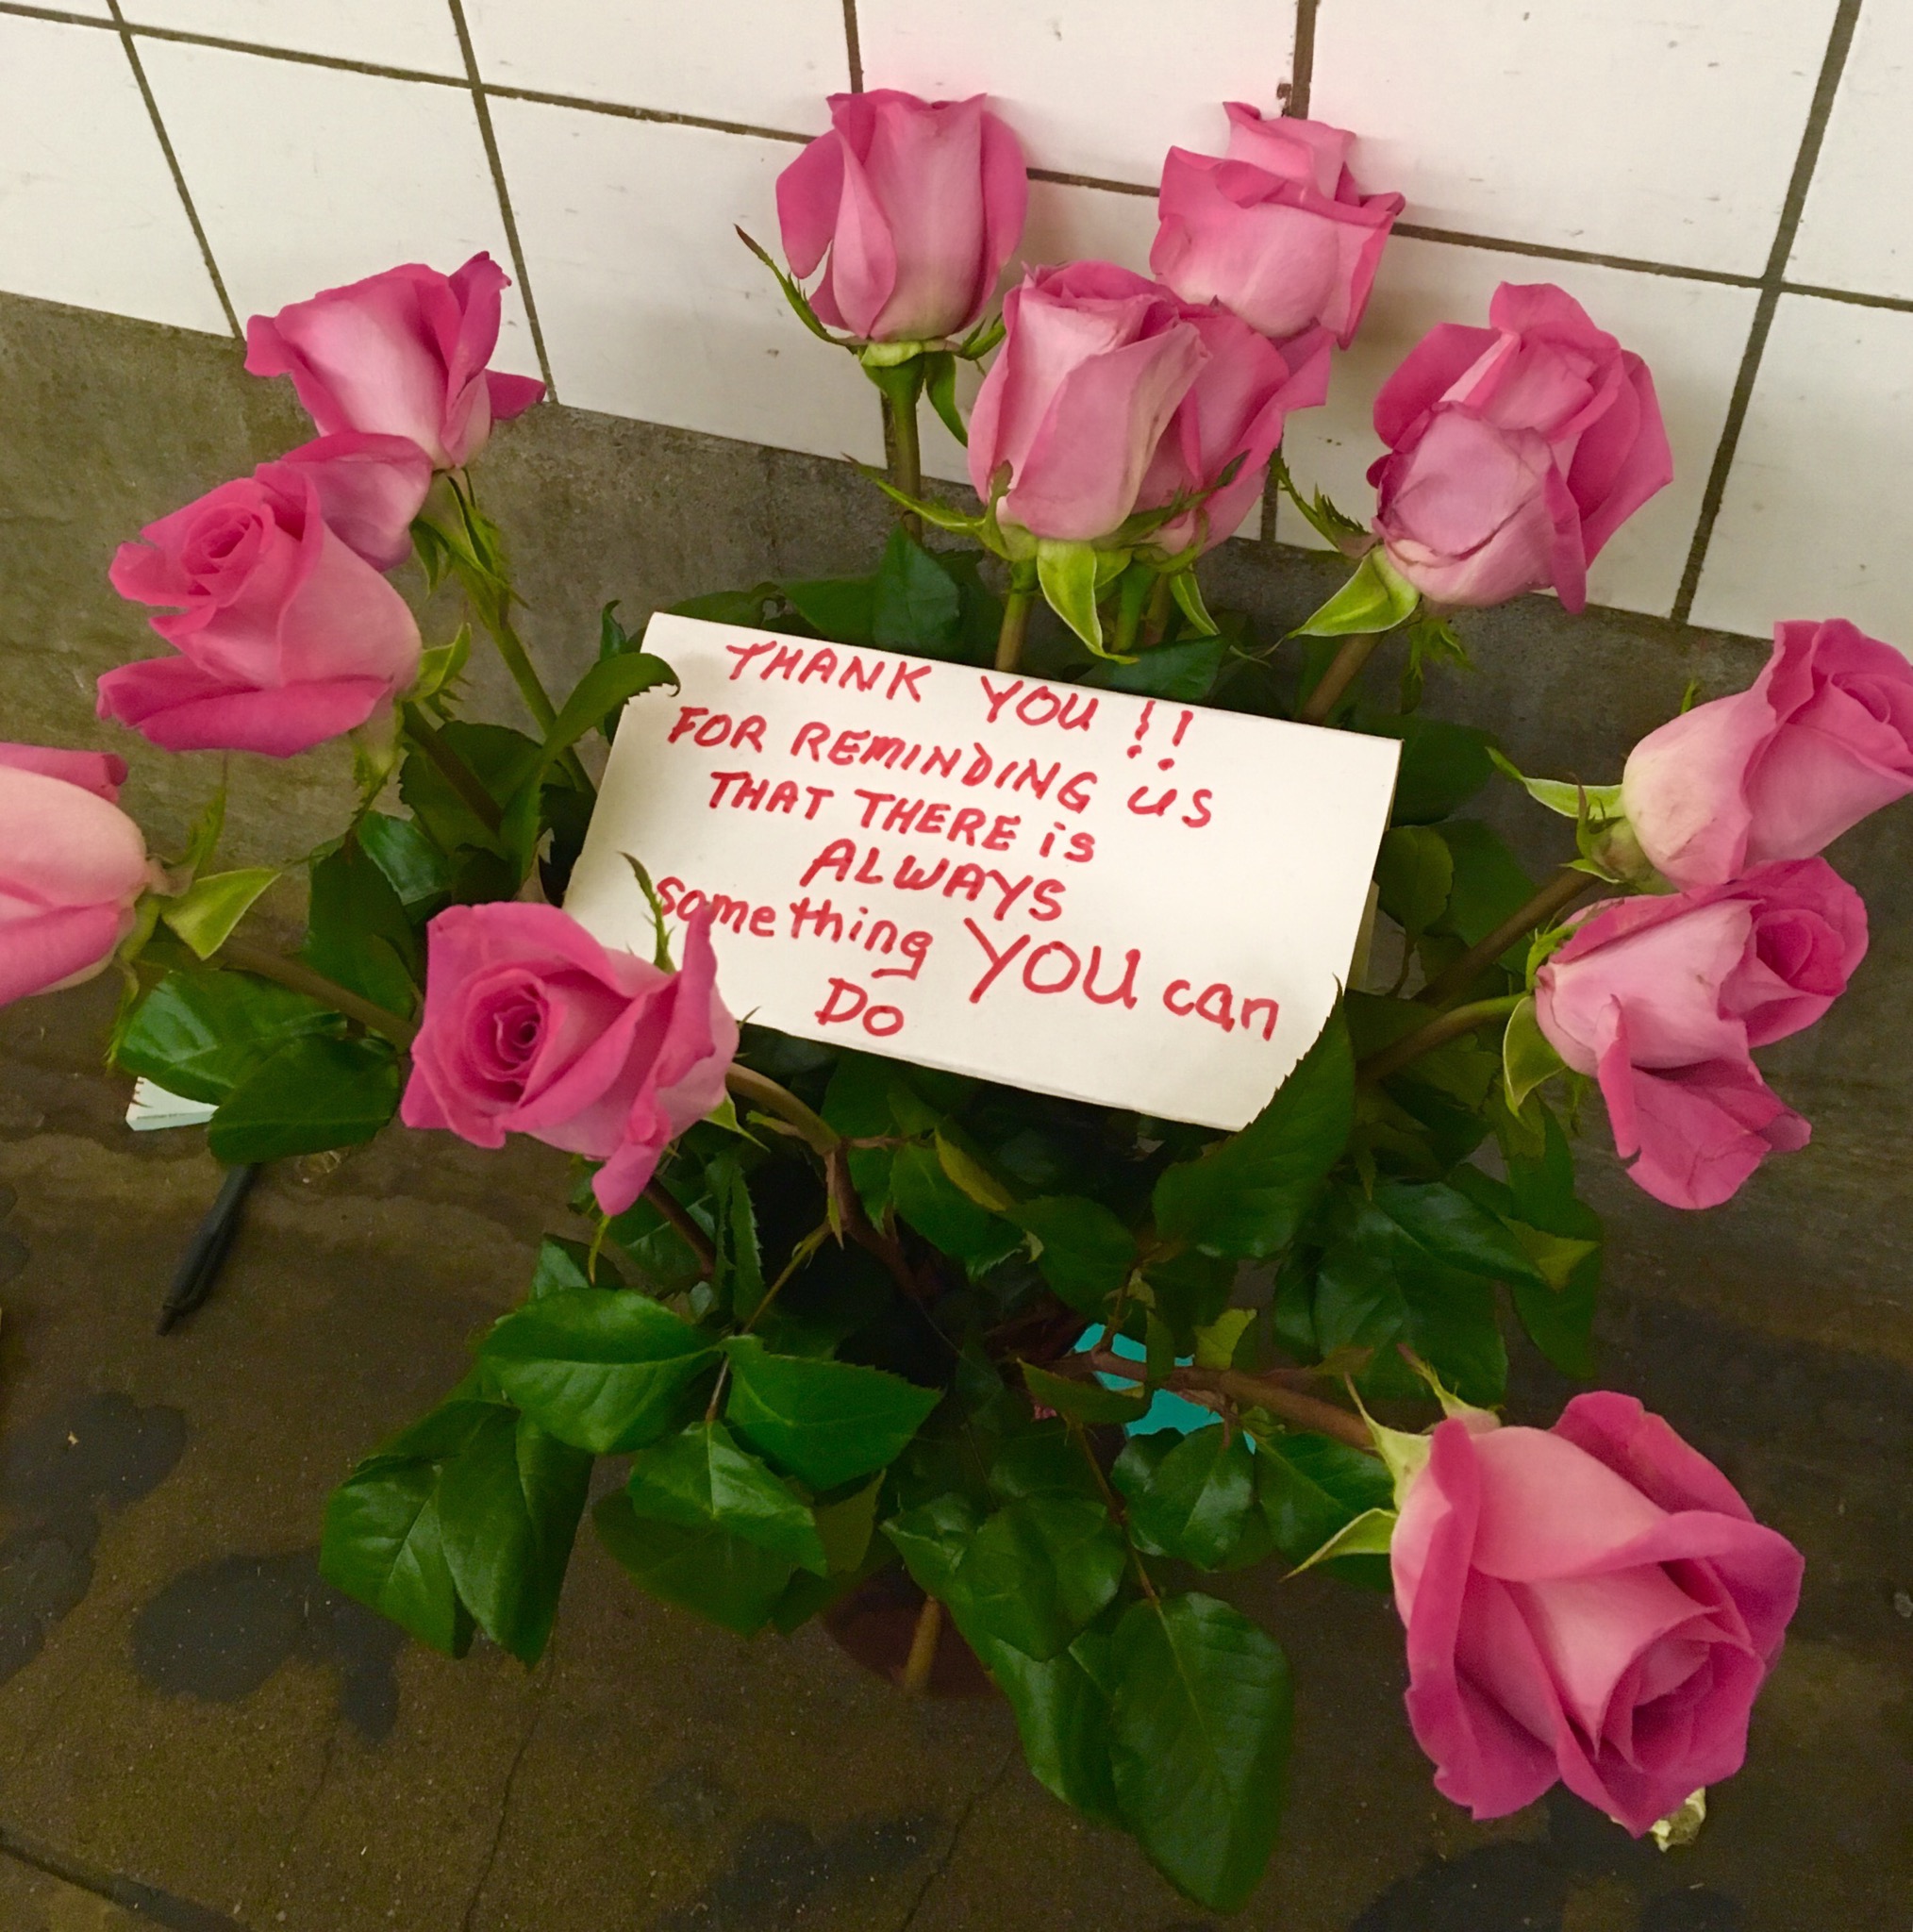 THANK YOU !!
FOR REMINDING US
THAT THERE is
ALWAYS
something YOU can
DO